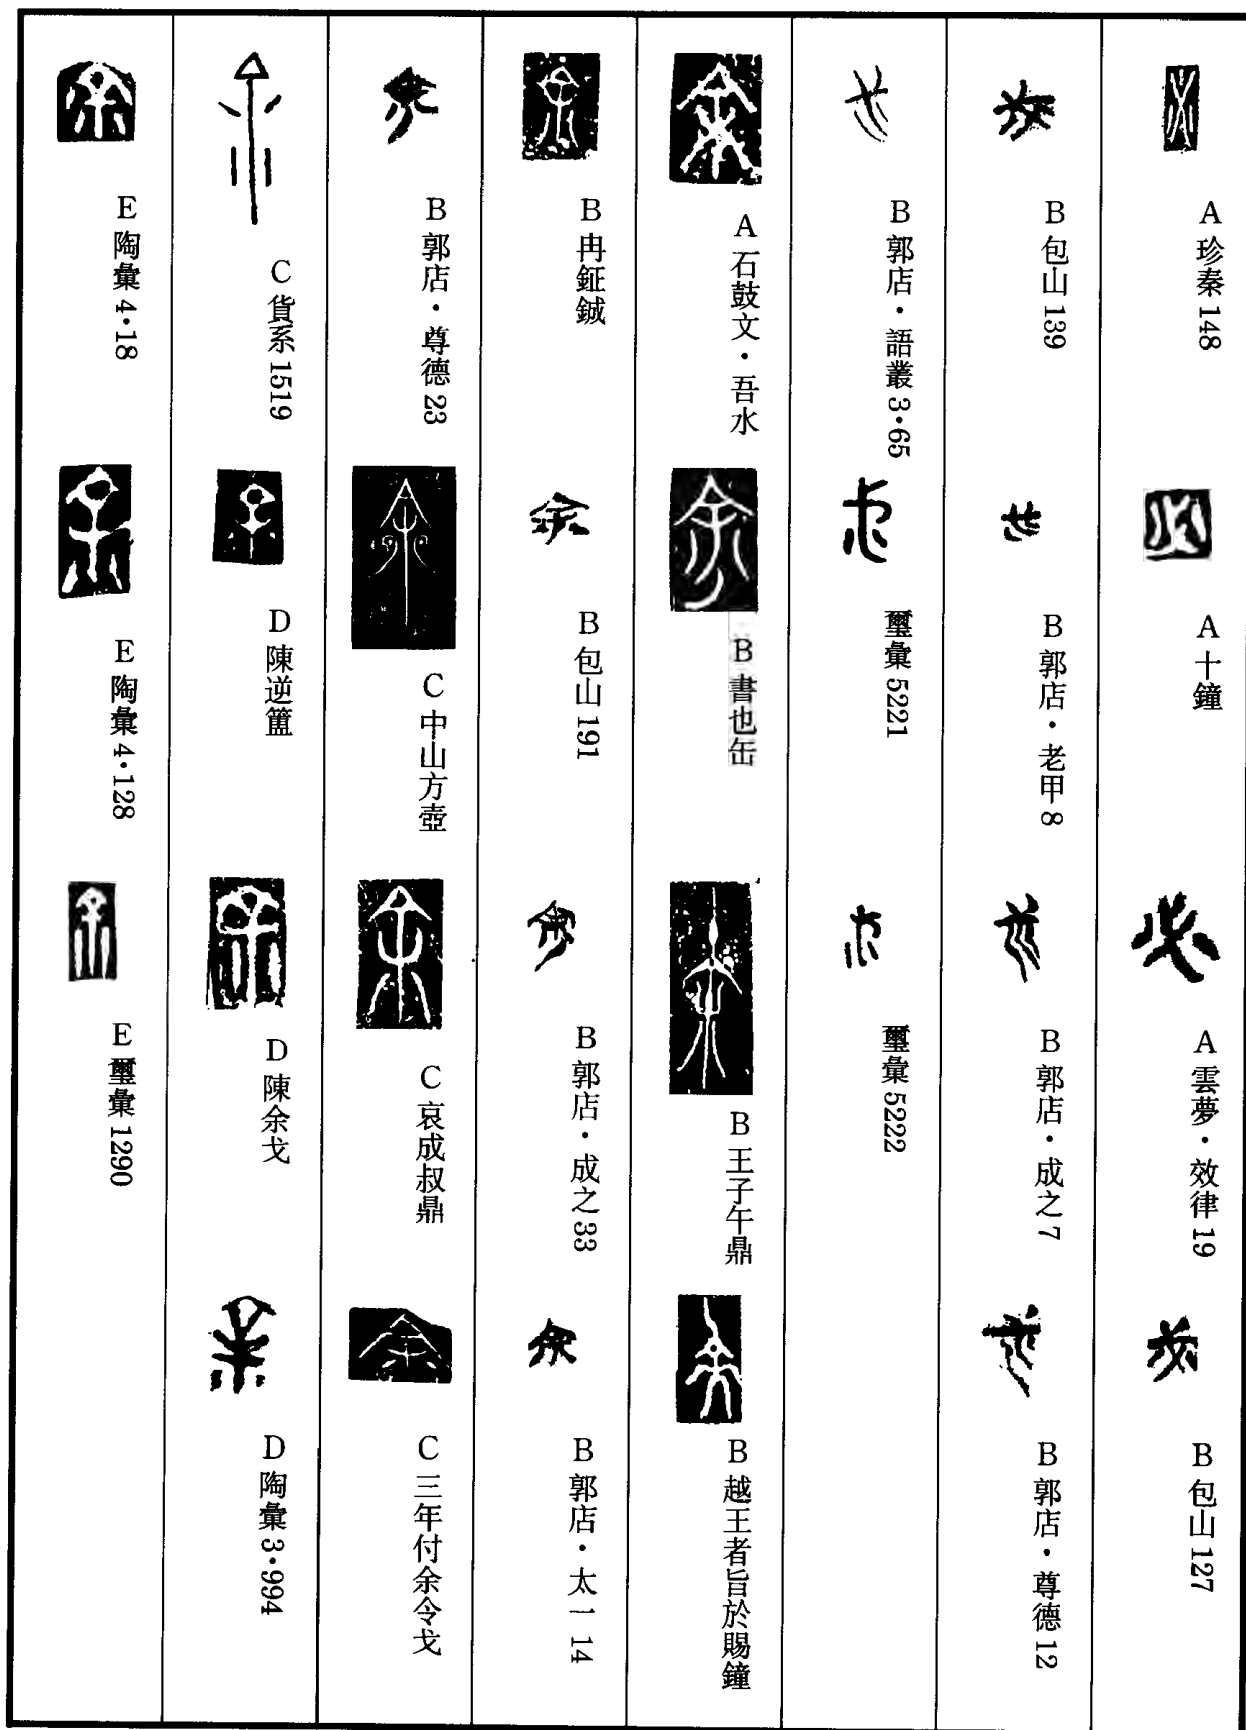 A 珍秦 148
A 十鐘
A 雲夢・效律 19
B 包山 127
B 包山 139
B 郭店・老甲 8
B 郭店・成之 7
B 郭店・尊德 12
B 郭店・語叢 3・65
璽彙 5221
璽彙 5222
A 石鼓文・吾水
B 書也缶
B 王子午鼎
B 越王者旨於賜鐘
B 冉鉦鋮
B 包山 191
B 郭店・成之 33
B 郭店・太一 14
B 郭店・尊德 23
C 中山方壺
C 哀成叔鼎
C 三年付余令戈
C 貨系 1519
D 陳逆簠
D 陳余戈
D 陶彙 3・994
E 陶彙 4・18
E 陶彙 4・128
E 璽彙 1290